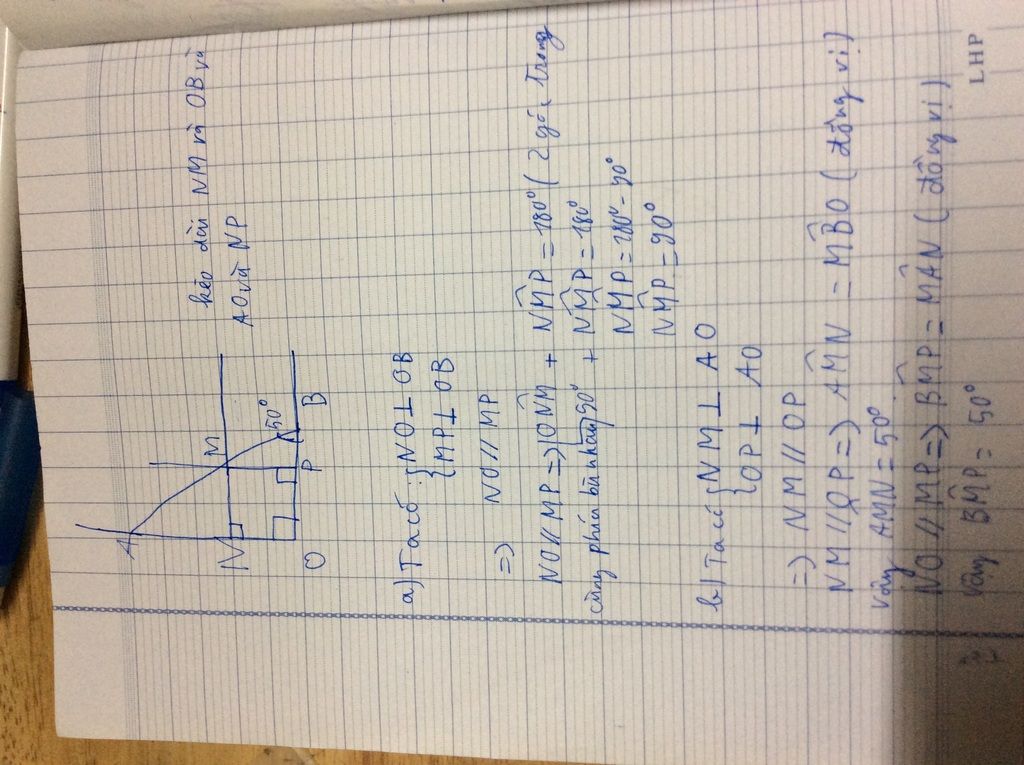 kéo dài NM và OB và
AO và NP
A
N
M
50°
O
P
B
a) Ta có : { NO ⊥ OB
{ MP ⊥ OB
=> NO // MP
NO // MP => ONM + NMP = 180° ( 2 góc trong
cùng phía bù nhau) 90° + NMP = 180°
NMP = 180° - 90°
NMP = 90°
b) Ta có { NM ⊥ AO
{ OP ⊥ AO
=> NM // OP
NM // OP => AMN = MBO ( đồng vị )
vậy AMN = 50°
NO // MP => BMP = MAN ( đồng vị )
vậy BMP = 50°
LHP